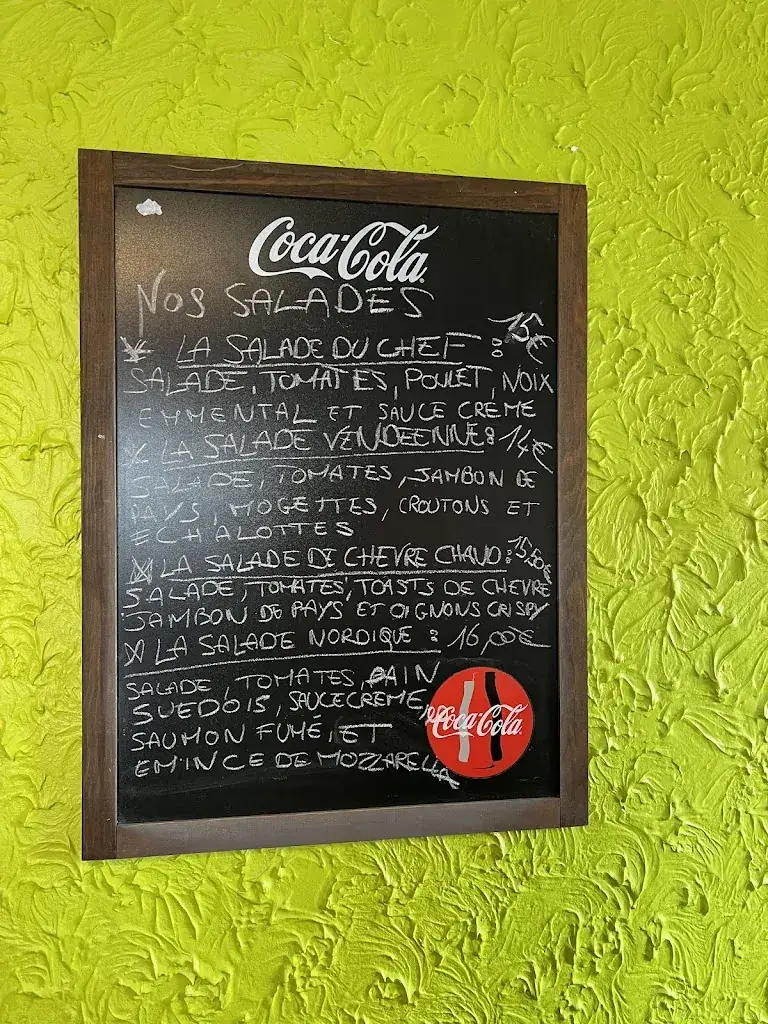 Coca-Cola
NOS SALADES
LA SALADE DU CHEF : 15€
SALADE, TOMATES, POULET, NOIX
EMMENTAL ET SAUCE CREME
LA SALADE VENDEENNE: 14€
SALADE, TOMATES, JAMBON DE
PAYS, MOGETTES, CROUTONS ET
ECHALOTTES
LA SALADE DE CHEVRE CHAUD: 15,50€
SALADE, TOMATES, TOASTS DE CHEVRE
JAMBON DE PAYS ET OIGNONS CRISPY
LA SALADE NORDIQUE : 16,00€
SALADE, TOMATES, PAIN
SUEDOIS, SAUCE CREME,
SAUMON FUMÉ, ET
EMINCE DE MOZZARELLA
Coca-Cola